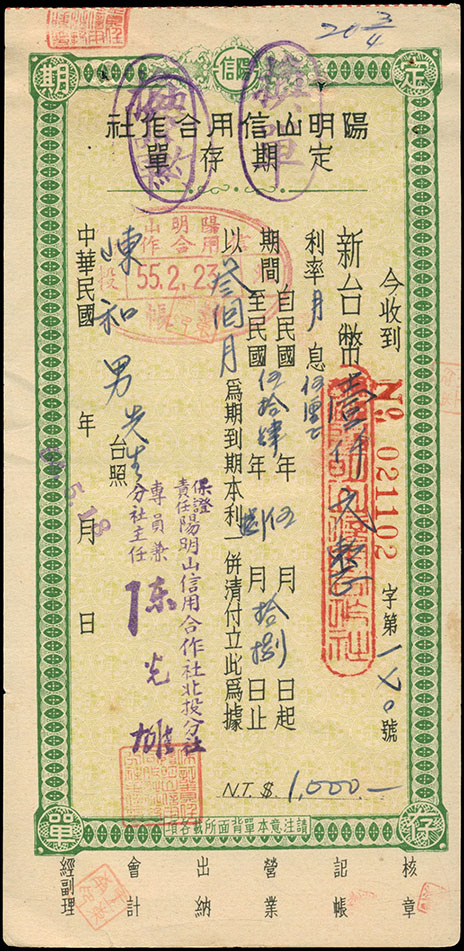 20 3/4
定期存單
陽信
陽明山信用合作社
定期存單
今收到
No. 021102
字第一七〇號
新台幣壹仟元整
利率月息
期間自民國伍拾肆年伍月拾捌日起
至民國年月拾捌日止
以叁個月為期到期本利一併清付立此為據
和男先生台照
中華民國年月日
陽明山信用合作社
55.2.23
保證責任陽明山信用合作社北投分社
專員兼
分社主任
陳光
N.T.$. 1,000.—
請注意本單背面所載各項
核章
記帳
營業
出納
會計
經副理